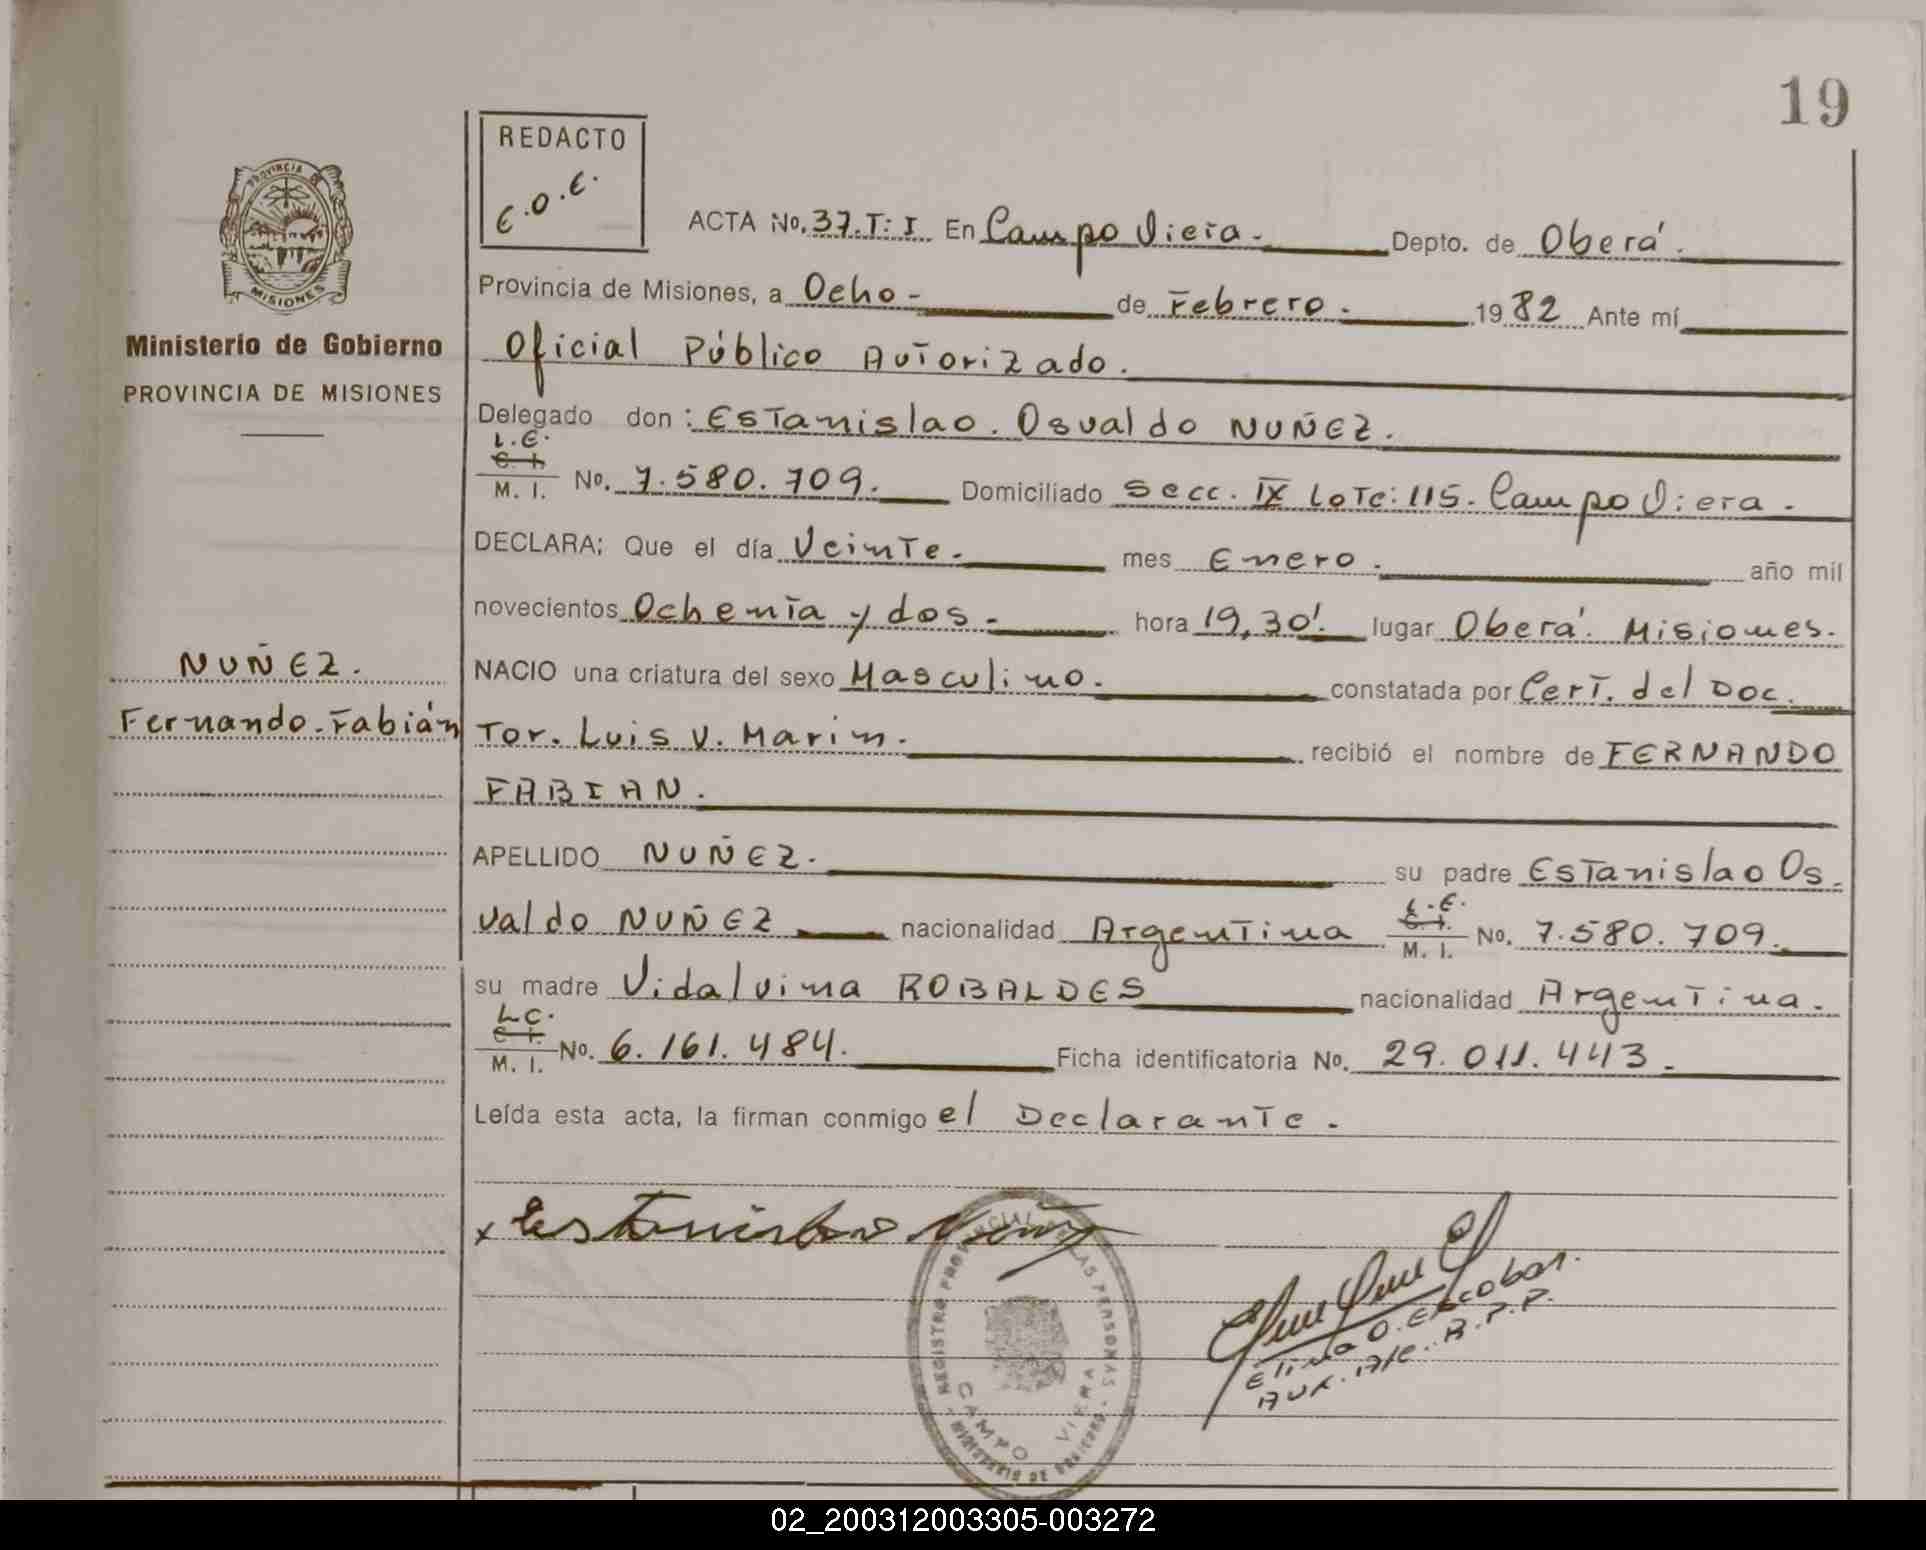 19
REDACTO
E.O.E.
PROVINCIA DE
MISIONES
Ministerio de Gobierno
PROVINCIA DE MISIONES
ACTA No. 37.T: I En Campo Viera.- Depto. de Oberá.
Provincia de Misiones, a Ocho.- de Febrero.- 1982 Ante mí
Oficial Público Autorizado.
Delegado don: Estanislao. Osvaldo NUÑEZ.
L.E.
C. I.
M. I. No. 7.580.709. Domiciliado Secc. IX Lote: 115. Campo Viera.
DECLARA: Que el día Veinte.- mes Enero. año mil
novecientos Ochenta y dos.- hora 19,30'. lugar Oberá. Misiones.
NUÑEZ.
NACIO una criatura del sexo Masculino. constatada por Cert. del Doc.
Fernando.Fabián
Tor. Luis V. Marin. recibió el nombre de FERNANDO
FABIAN.
APELLIDO NUÑEZ. su padre Estanislao Os-
valdo NUÑEZ nacionalidad Argentina L.E. C. I. M. I. No. 7.580.709.
su madre Vidalvina ROBALDES nacionalidad Argentina.
L.C.
C. I.
M. I. No. 6.161.484. Ficha identificatoria No. 29.011.443.
Leída esta acta, la firman conmigo el Declarante.
x Estanislao
REGISTRO PROVINCIAL DE LAS PERSONAS
CAMPO VIERA
MINISTERIO DE GOBIERNO
Elina O. Escobar.
Aux. R.P.P.
02_200312003305-003272